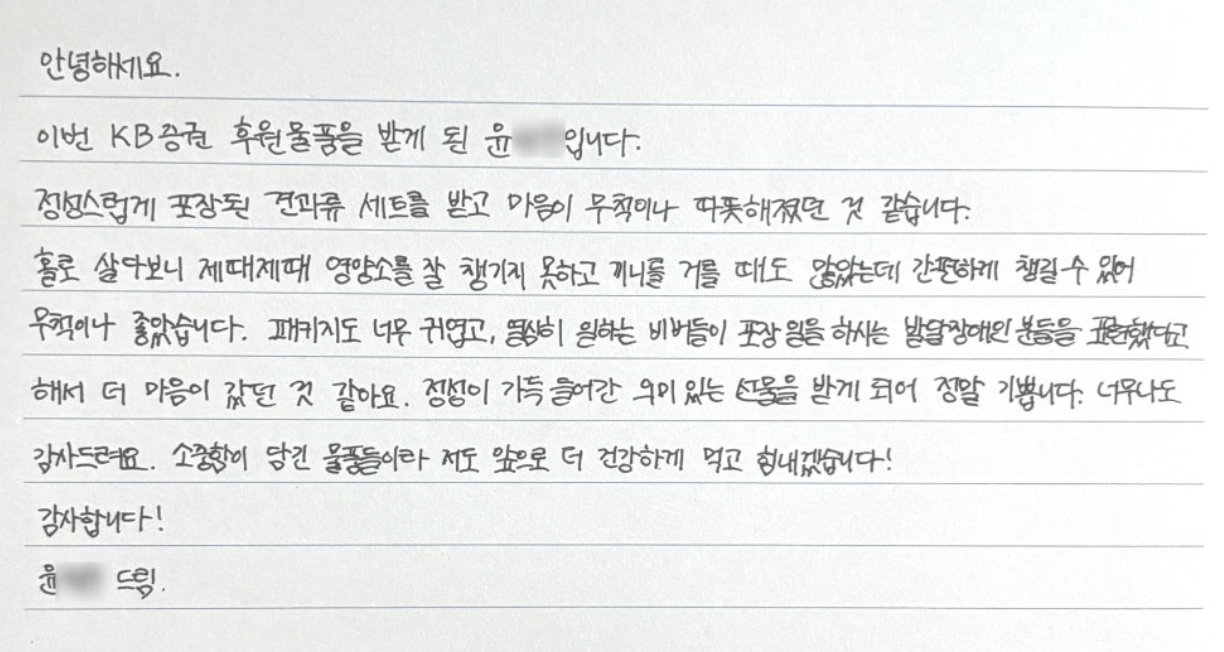 안녕하세요.
이번 KB증권 후원물품을 받게 된 윤 입니다.
정성스럽게 포장된 견과류 세트를 받고 마음이 무척이나 따뜻해졌던 것 같습니다.
홀로 살다보니 제때제때 영양소를 잘 챙기지 못하고 끼니를 거를 때도 많았는데 간편하게 챙길 수 있어
무척이나 좋았습니다. 패키지도 너무 귀엽고, 열심히 일하는 비버들이 포장 일을 하시는 발달장애인 분들을 표현했다고
해서 더 마음이 갔던 것 같아요. 정성이 가득 들어간 의미 있는 선물을 받게 되어 정말 기쁩니다. 너무나도
감사드려요. 소중함이 담긴 물품들이라 저도 앞으로 더 건강하게 먹고 힘내겠습니다!
감사합니다!
윤 드림.